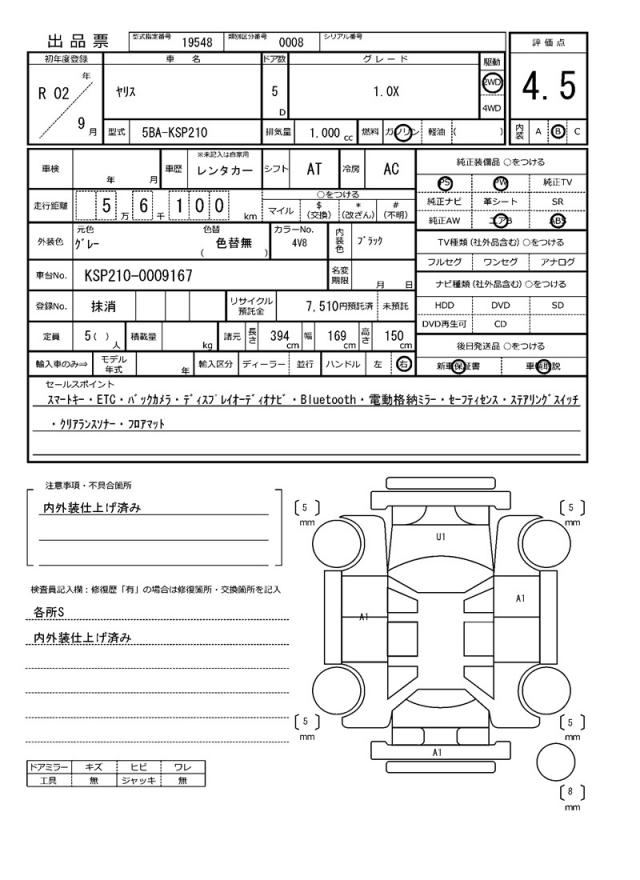 出品票 型式指定番号 19548 類別区分番号 0008 シリアル番号
評価点
初年度登録 車名 ドア数 グレード 駆動
R 02 年 9 月 ヤリス 5 D 1.0X 2WD 4WD
4.5
型式 5BA-KSP210 排気量 1.000 cc 燃料 ガソリン 軽油 ( )
内装 A B C
車検 年 月 車歴 ※未記入は自家用 レンタカー シフト AT 冷房 AC
純正装備品 ○をつける
PS PW 純正TV
走行距離 5 万 6 千 1 0 0 km
○をつける
マイル $ (交換) * (改ざん) # (不明)
純正ナビ 革シート SR
純正AW エアB ABS
外装色 元色 グレー 色替 色替無 ( ) カラーNo. 4V8 内装色 ブラック
TV種類(社外品含む)○をつける
フルセグ ワンセグ アナログ
車台No. KSP210-0009167 名変期限 月 日
ナビ種類(社外品含む)○をつける
登録No. 抹消 リサイクル預託金 7,510円預託済 未預託
HDD DVD SD
DVD再生可 CD
定員 5( ) 人 積載量 kg 諸元 長さ 394 cm 幅 169 cm 高さ 150 cm
後日発送品 ○をつける
輸入車のみ⇒ モデル年式 年 輸入区分 ディーラー 並行 ハンドル 左 右
新車保証書 車輌取説
セールスポイント
スマートキー・ETC・バックカメラ・ディスプレイオーディオナビ・Bluetooth・電動格納ミラー・セーフティセンス・ステアリングスイッチ
・クリアランスソナー・フロアマット
注意事項・不具合箇所
内外装仕上げ済み
検査員記入欄:修復歴「有」の場合は修復箇所・交換箇所を記入
各所S
内外装仕上げ済み
5 mm
5 mm
U1
A1
A1
5 mm
5 mm
A1
8 mm
ドアミラー キズ ヒビ ワレ
工具 無 ジャッキ 無